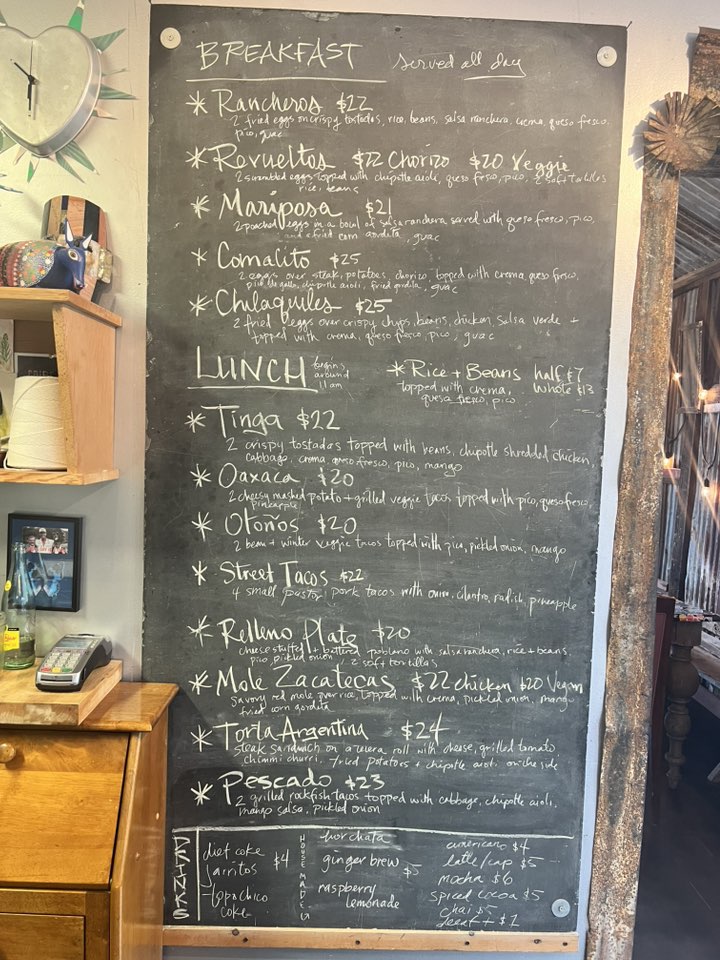 BREAKFAST served all day
* Rancheros $22
2 fried eggs on crispy tostadas, rice, beans, salsa ranchera, crema, queso fresco,
pico, guac
* Revueltos $22 Chorizo $20 Veggie
2 scrambled eggs topped with chipotle aioli, queso fresco, pico, 2 soft tortillas
rice, beans
* Mariposa $21
2 poached eggs in a bowl of salsa ranchera served with queso fresco, pico,
and a fried corn gordita, guac
* Comalito $25
2 eggs over steak, potatoes, chorizo, topped with crema, queso fresco,
pico de gallo, chipotle aioli, fried gordita, guac
* Chilaquiles $25
2 fried eggs over crispy chips, beans, chicken, salsa verde +
topped with crema, queso fresco, pico, guac
LUNCH begins around 11am
* Rice + Beans half $7
topped with crema, whole $13
queso fresco, pico
* Tinga $22
2 crispy tostadas topped with beans, chipotle shredded chicken,
cabbage, crema, queso fresco, pico, mango
* Oaxaca $20
2 cheesy mashed potato + grilled veggie tacos topped with pico, queso fresco,
pineapple
* Otoños $20
2 bean + winter veggie tacos topped with pico, pickled onion, mango
* Street Tacos $22
4 small pastor pork tacos with onion, cilantro, radish, pineapple
* Relleno Plate $20
cheese stuffed + battered poblano with salsa ranchera, rice + beans,
pico, pickled onion, 2 soft tortillas
* Mole Zacatecas $22 chicken $20 Vegan
savory red mole over rice, topped with crema, pickled onion, mango
fried corn gordita
* Torta Argentina $24
steak sandwich on a telera roll with cheese, grilled tomato
chimmi churri, fried potatoes + chipotle aioli on the side
* Pescado $23
2 grilled rockfish tacos topped with cabbage, chipotle aioli,
mango salsa, pickled onion
DRINKS
diet coke $4
jarritos
topo chico
coke
HOUSE MADE
horchata
ginger brew $5
raspberry
lemonade
americano $4
latte/cap $5
mocha $6
spiced cocoa $5
chai $5
decaf + $1